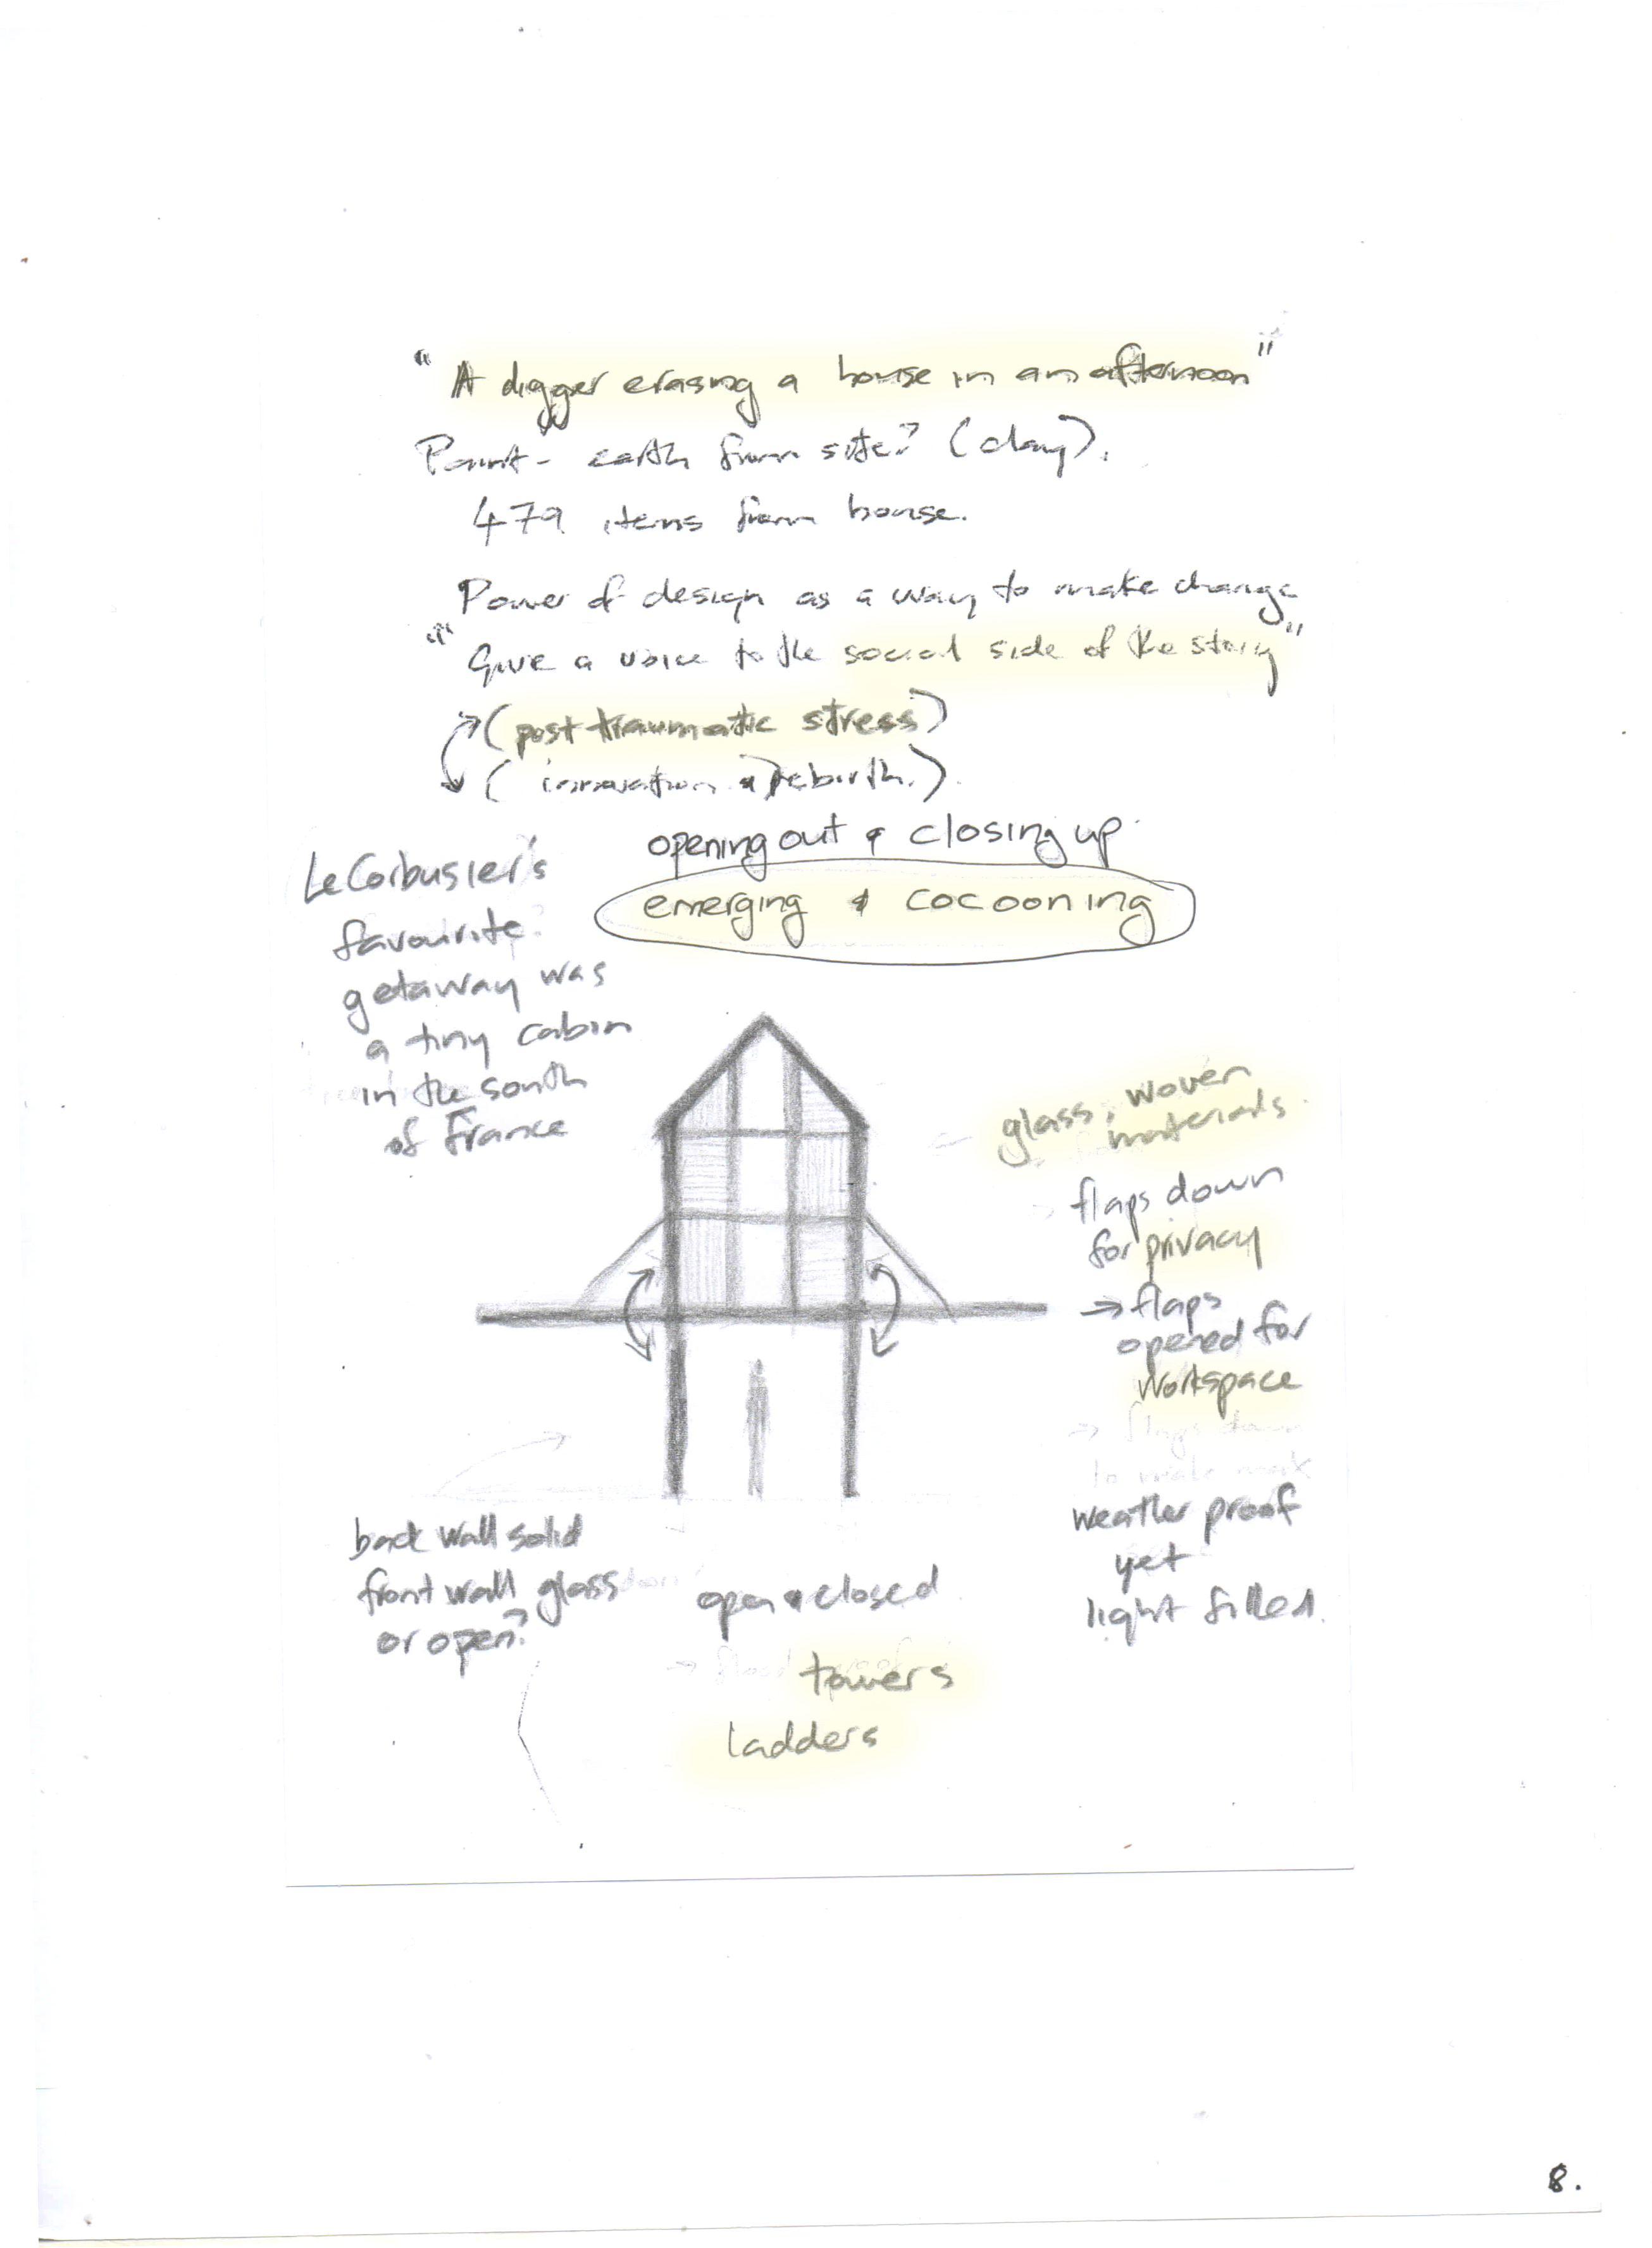 "A digger erasing a house in an afternoon"
Paint - earth from site? (clay).
479 items from house.
Power of design as a way to make change
"Give a voice to the social side of the story"
(post traumatic stress)
(innovation & rebirth.)
opening out & closing up.
emerging & cocooning
Le Corbusier's
favourite
getaway was
a tiny cabin
in the south
of France
glass, woven
materials.
flaps down
for privacy
→ flaps
opened for
workspace
→ flaps down
to make
weather proof
yet
light filled.
back wall solid
front wall glass
or open?
open & closed
towers
ladders
8.